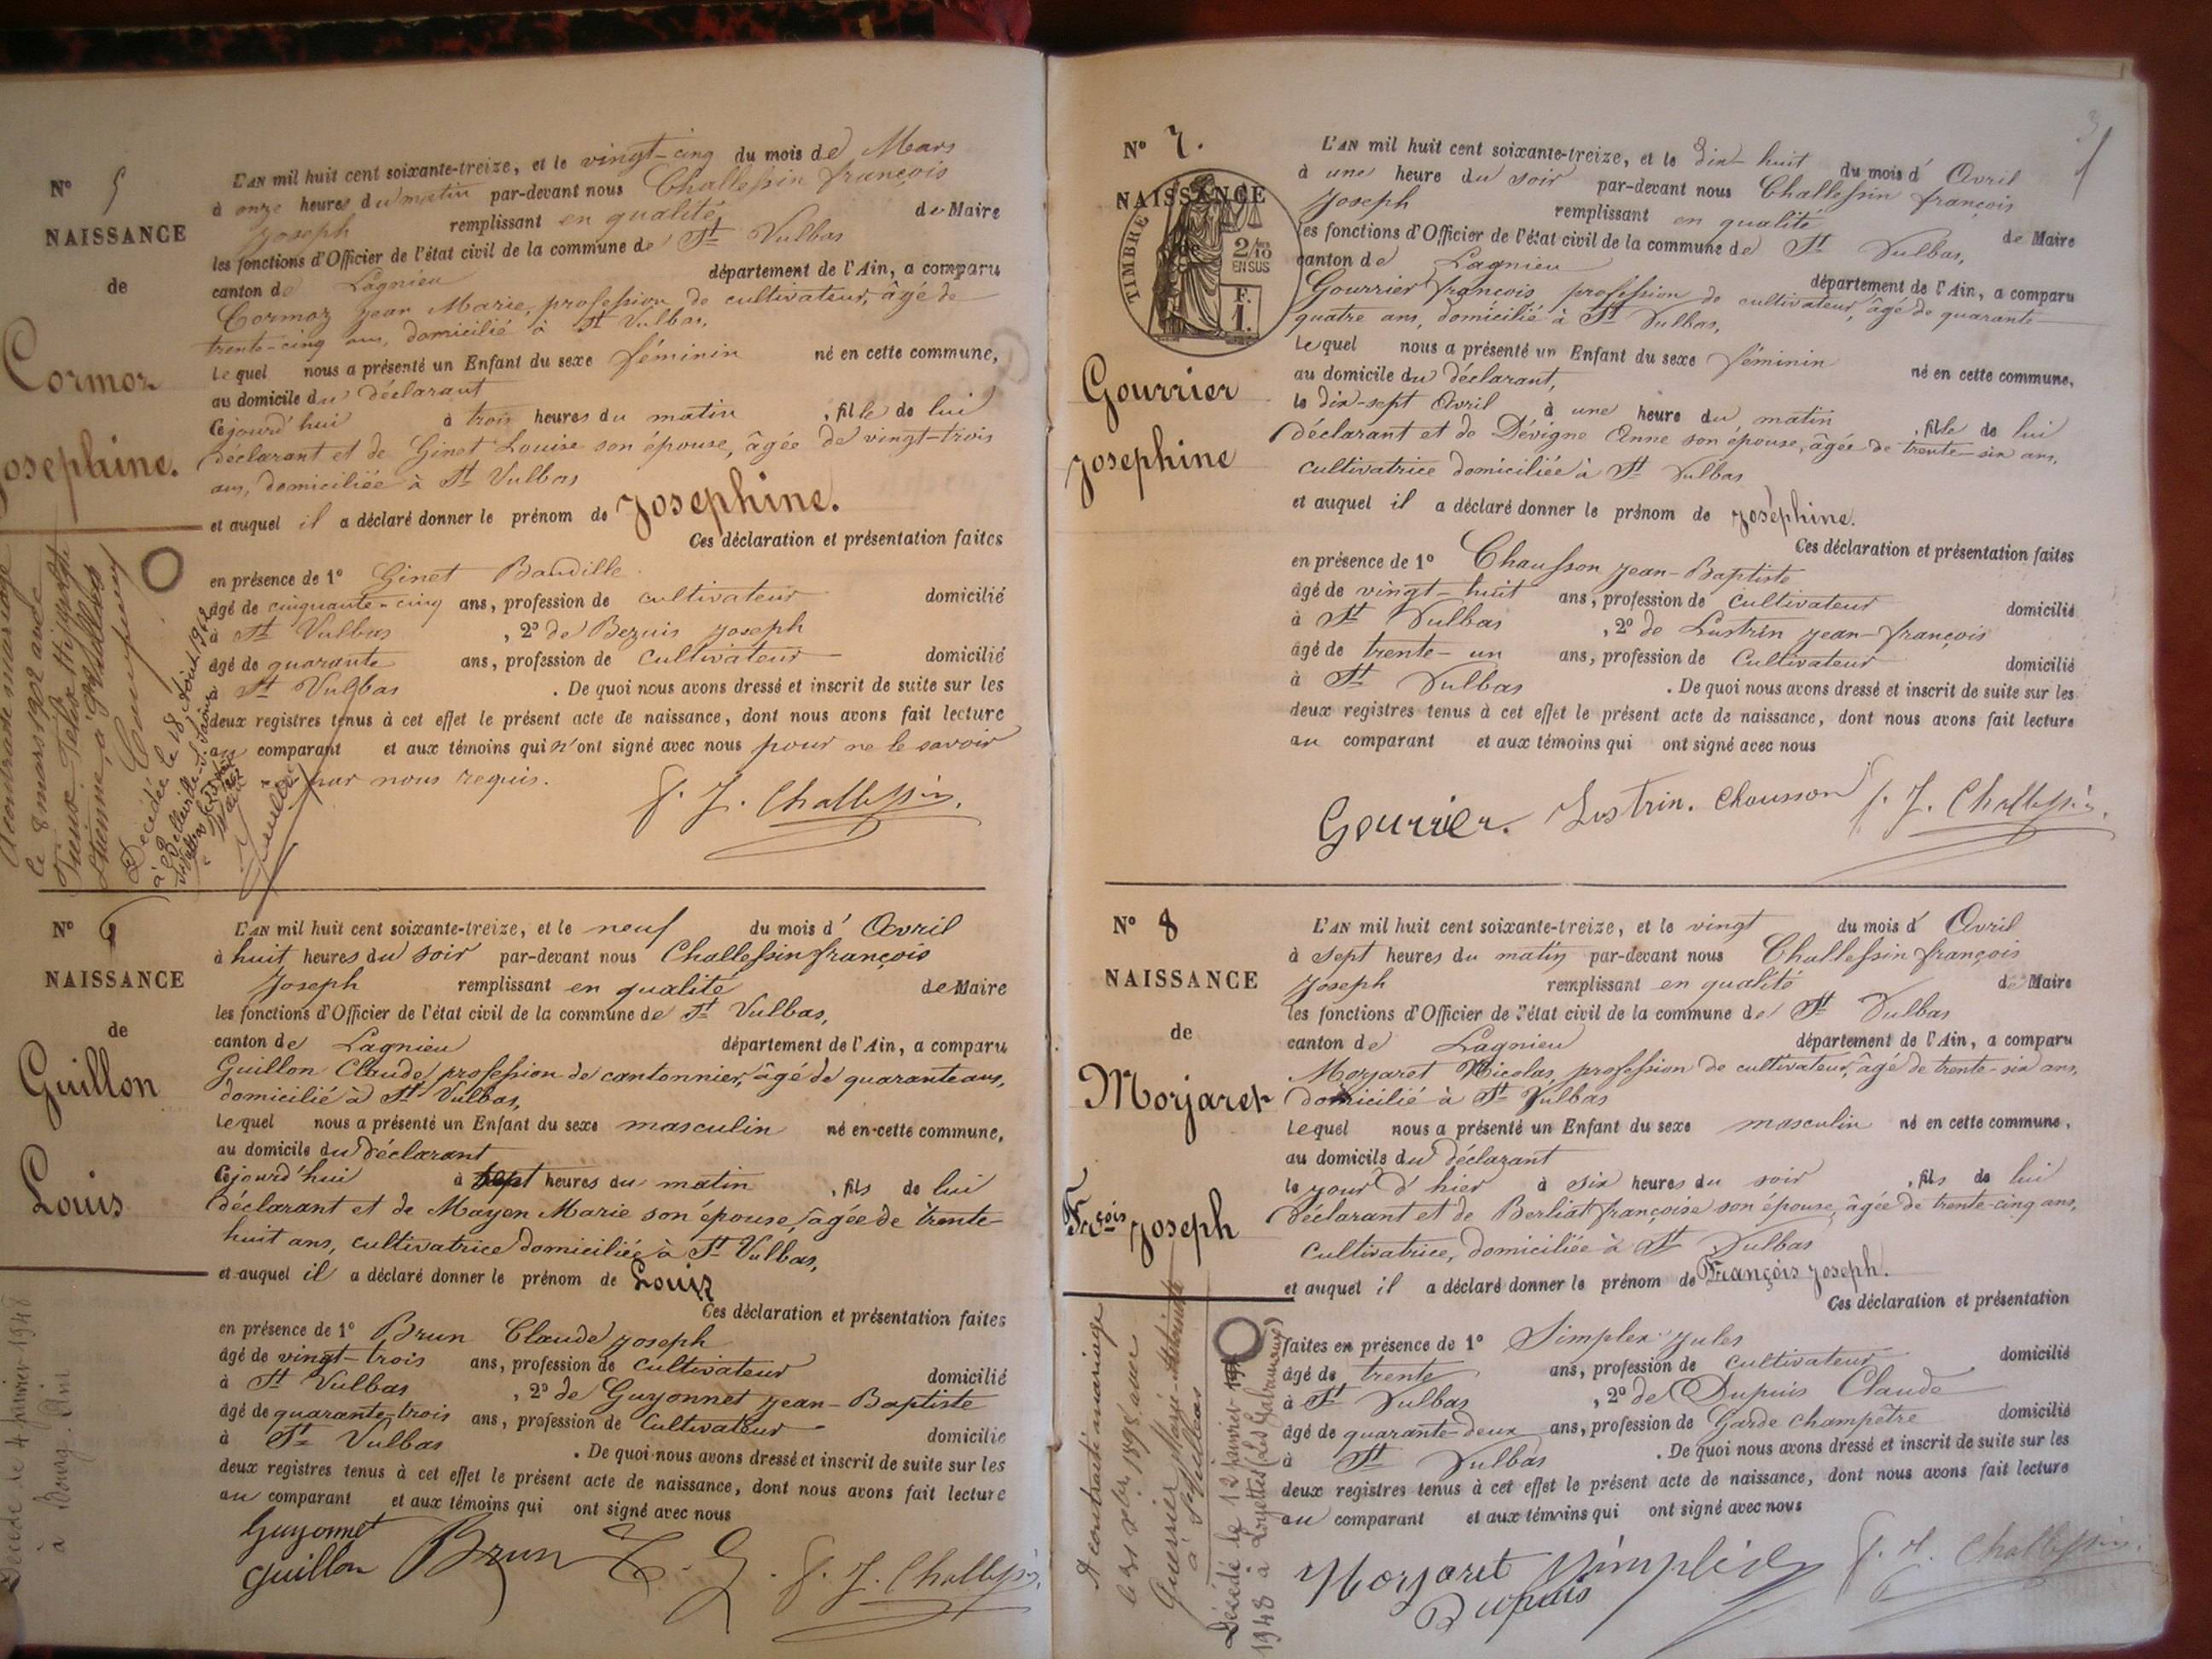 N° 5
NAISSANCE
de
Cormoz
Josephine.
L'AN mil huit cent soixante-treize, et le vingt-cinq du mois de Mars
à onze heures du matin par-devant nous Challessin françois
Joseph remplissant en qualité de Maire
les fonctions d'Officier de l'état civil de la commune de St Vulbas
canton de Lagnieu département de l'Ain, a comparu
Cormoz Jean Marie, profession de cultivateur, âgé de
trente-cinq ans, domicilié à St Vulbas,
Lequel nous a présenté un Enfant du sexe féminin né en cette commune,
au domicile du déclarant
Cejourd'hui à trois heures du matin, fille de lui
déclarant et de Ginet Louise son épouse, âgée de vingt-trois
ans, domiciliée à St Vulbas
et auquel il a déclaré donner le prénom de Josephine.
Ces déclaration et présentation faites
en présence de 1° Ginet Baudille
âgé de cinquante-cinq ans, profession de cultivateur domicilié
à St Vulbas, 2° de Bezuis Joseph
âgé de quarante ans, profession de Cultivateur domicilié
à St Vulbas. De quoi nous avons dressé et inscrit de suite sur les
deux registres tenus à cet effet le présent acte de naissance, dont nous avons fait lecture
au comparant et aux témoins qui n'ont signé avec nous pour ne le savoir
par nous requis.
f. J. Challessin.
A contracté mariage
le 8 mars 1902 avec
Étienne, à St Vulbas
Décédée le 18 Août 1962
à Belleville-s-Saône
N° 6
NAISSANCE
de
Guillon
Louis
L'AN mil huit cent soixante-treize, et le neuf du mois d' Avril
à huit heures du soir par-devant nous Challessin françois
Joseph remplissant en qualité de Maire
les fonctions d'Officier de l'état civil de la commune de St Vulbas,
canton de Lagnieu département de l'Ain, a comparu
Guillon Claude, profession de cantonnier, âgé de quarante ans,
domicilié à St Vulbas,
Lequel nous a présenté un Enfant du sexe masculin né en cette commune,
au domicile du déclarant
Cejourd'hui à sept heures du matin, fils de lui
déclarant et de Mayen Marie son épouse, âgée de trente-
huit ans, cultivatrice domiciliée à St Vulbas,
et auquel il a déclaré donner le prénom de Louis
Ces déclaration et présentation faites
en présence de 1° Brun Claude Joseph
âgé de vingt-trois ans, profession de cultivateur domicilié
à St Vulbas, 2° de Guyonnet Jean-Baptiste
âgé de quarante-trois ans, profession de Cultivateur domicilié
à St Vulbas. De quoi nous avons dressé et inscrit de suite sur les
deux registres tenus à cet effet le présent acte de naissance, dont nous avons fait lecture
au comparant et aux témoins qui ont signé avec nous
Guyonnet
Guillon Brun C. G. f. J. Challessin.
Décédé le 4 janvier 1948
à Bourg. Ain
3
N° 7.
NAISSANCE
de
TIMBRE
2/10
EN SUS
F.
1.
Gourrier
Josephine
L'AN mil huit cent soixante-treize, et le dix-huit du mois d' Avril
à une heure du soir par-devant nous Challessin françois
Joseph remplissant en qualité de Maire
les fonctions d'Officier de l'état civil de la commune de St Vulbas,
canton de Lagnieu département de l'Ain, a comparu
Gourrier françois profession de cultivateur, âgé de quarante-
quatre ans, domicilié à St Vulbas,
Lequel nous a présenté un Enfant du sexe féminin né en cette commune,
au domicile du déclarant,
le dix-sept Avril à une heure du matin, fille de lui
déclarant et de Dévigne Anne son épouse, âgée de trente-six ans,
cultivatrice domiciliée à St Vulbas
et auquel il a déclaré donner le prénom de Joséphine.
Ces déclaration et présentation faites
en présence de 1° Chausson Jean-Baptiste
âgé de vingt-huit ans, profession de Cultivateur domicilié
à St Vulbas, 2° de Lustrin Jean-françois
âgé de trente-un ans, profession de Cultivateur domicilié
à St Vulbas. De quoi nous avons dressé et inscrit de suite sur les
deux registres tenus à cet effet le présent acte de naissance, dont nous avons fait lecture
au comparant et aux témoins qui ont signé avec nous
Gourrier. Lustrin. Chausson f. J. Challessin.
N° 8
NAISSANCE
de
Morjaret
Fçois Joseph
L'AN mil huit cent soixante-treize, et le vingt du mois d' Avril
à sept heures du matin par-devant nous Challessin françois
Joseph remplissant en qualité de Maire
les fonctions d'Officier de l'état civil de la commune de St Vulbas
canton de Lagnieu département de l'Ain, a comparu
Morjaret Nicolas, profession de cultivateur, âgé de trente-six ans,
domicilié à St Vulbas
Lequel nous a présenté un Enfant du sexe masculin né en cette commune,
au domicile du déclarant
le jour d'hier à six heures du soir, fils de lui
déclarant et de Berliat françoise son épouse, âgée de trente-cinq ans,
Cultivatrice, domiciliée à St Vulbas
et auquel il a déclaré donner le prénom de François Joseph.
Ces déclaration et présentation
faites en présence de 1° Simplex Jules
âgé de trente ans, profession de cultivateur domicilié
à St Vulbas, 2° de Dupuis Claude
âgé de quarante-deux ans, profession de Garde champêtre domicilié
à St Vulbas. De quoi nous avons dressé et inscrit de suite sur les
deux registres tenus à cet effet le présent acte de naissance, dont nous avons fait lecture
au comparant et aux témoins qui ont signé avec nous
Morjaret Simplex f. J. Challessin.
Dupuis
A contracté mariage
le 31 Xbre 1898 avec
à St Vulbas
Décédé le 12 janvier
1948 à Loyettes (Les Gabanaux)